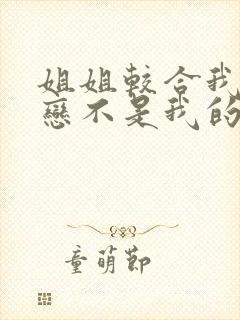 姐姐較合我
戀不是我的
童萌節